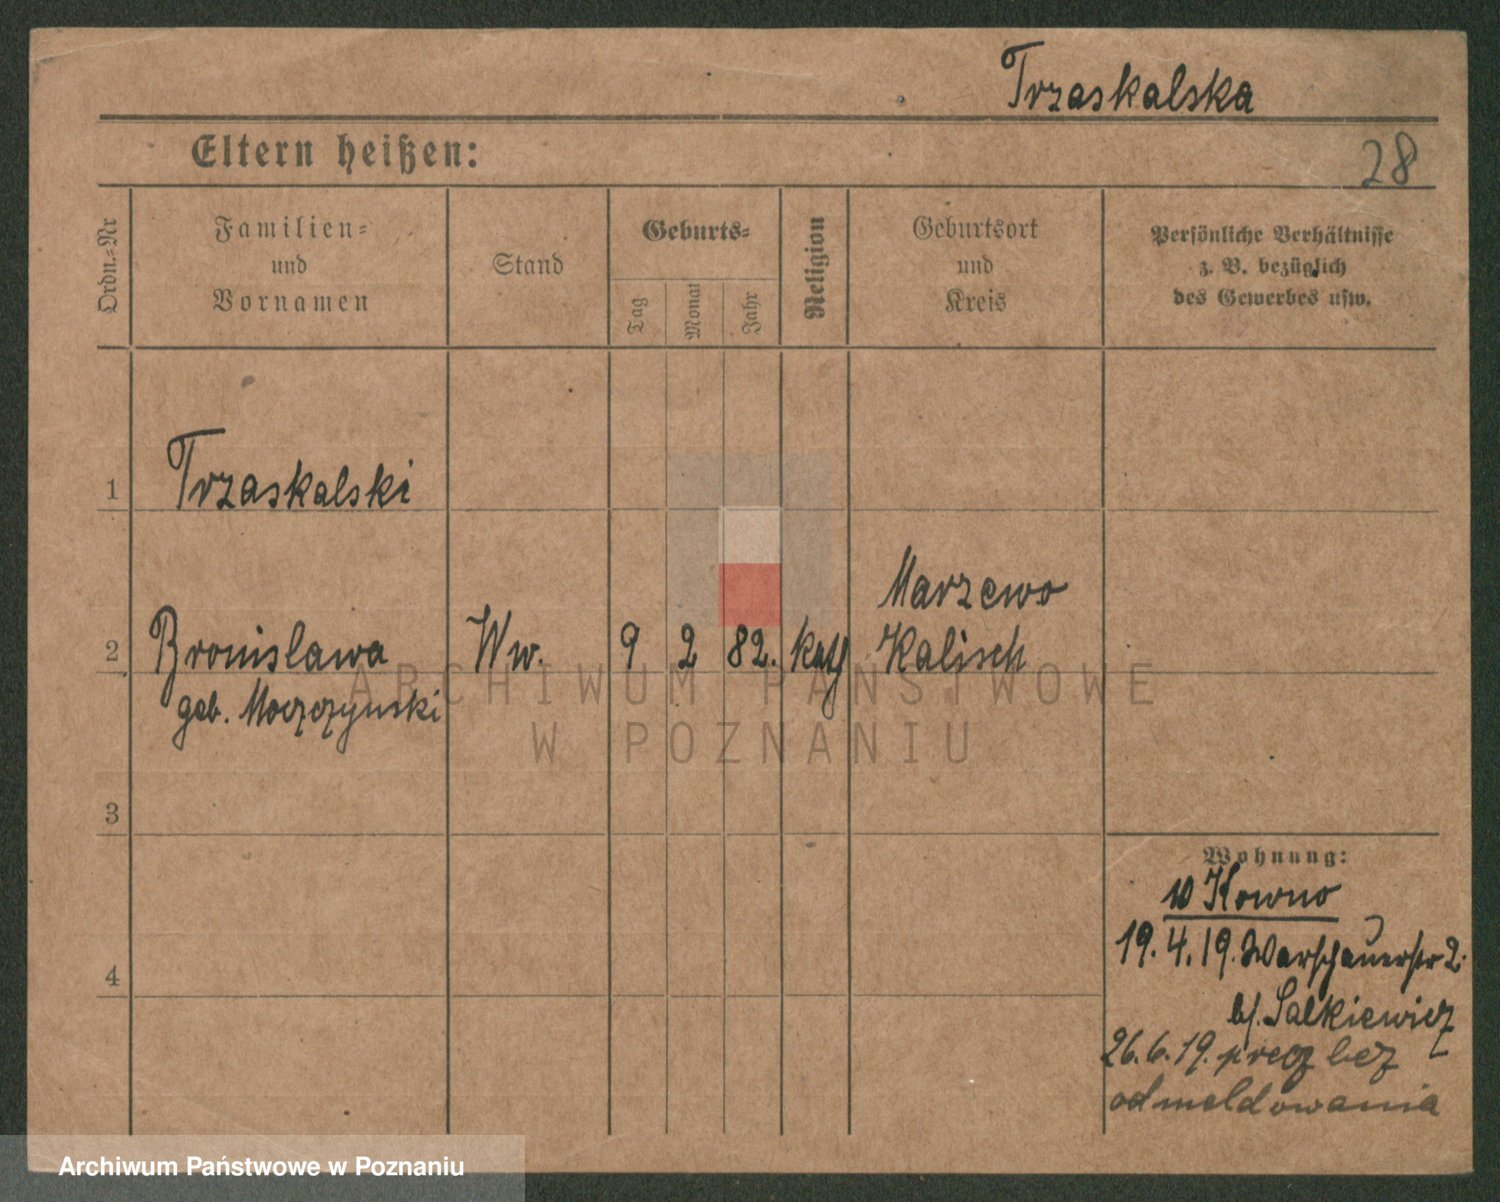 Trzaskalska
Eltern heißen:
28
Ordn.-Nr
Familien-
und
Vornamen
Stand
Geburts-
Tag
Monat
Jahr
Religion
Geburtsort
und
Kreis
Persönliche Verhältnisse
z. B. bezüglich
des Gewerbes usw.
1 Trzaskalski
Marzewo
2 Bronislawa Ww. 9 2 82. kath Kalisch
geb. Moczczynski
ARCHIWUM PAŃSTWOWE
W POZNANIU
3
Wohnung:
w Kowno
19.4.19. Warschauerstr 2.
4
b/. Salkiewicz
26.6.19. precz bez
odmeldowania
Archiwum Państwowe w Poznaniu